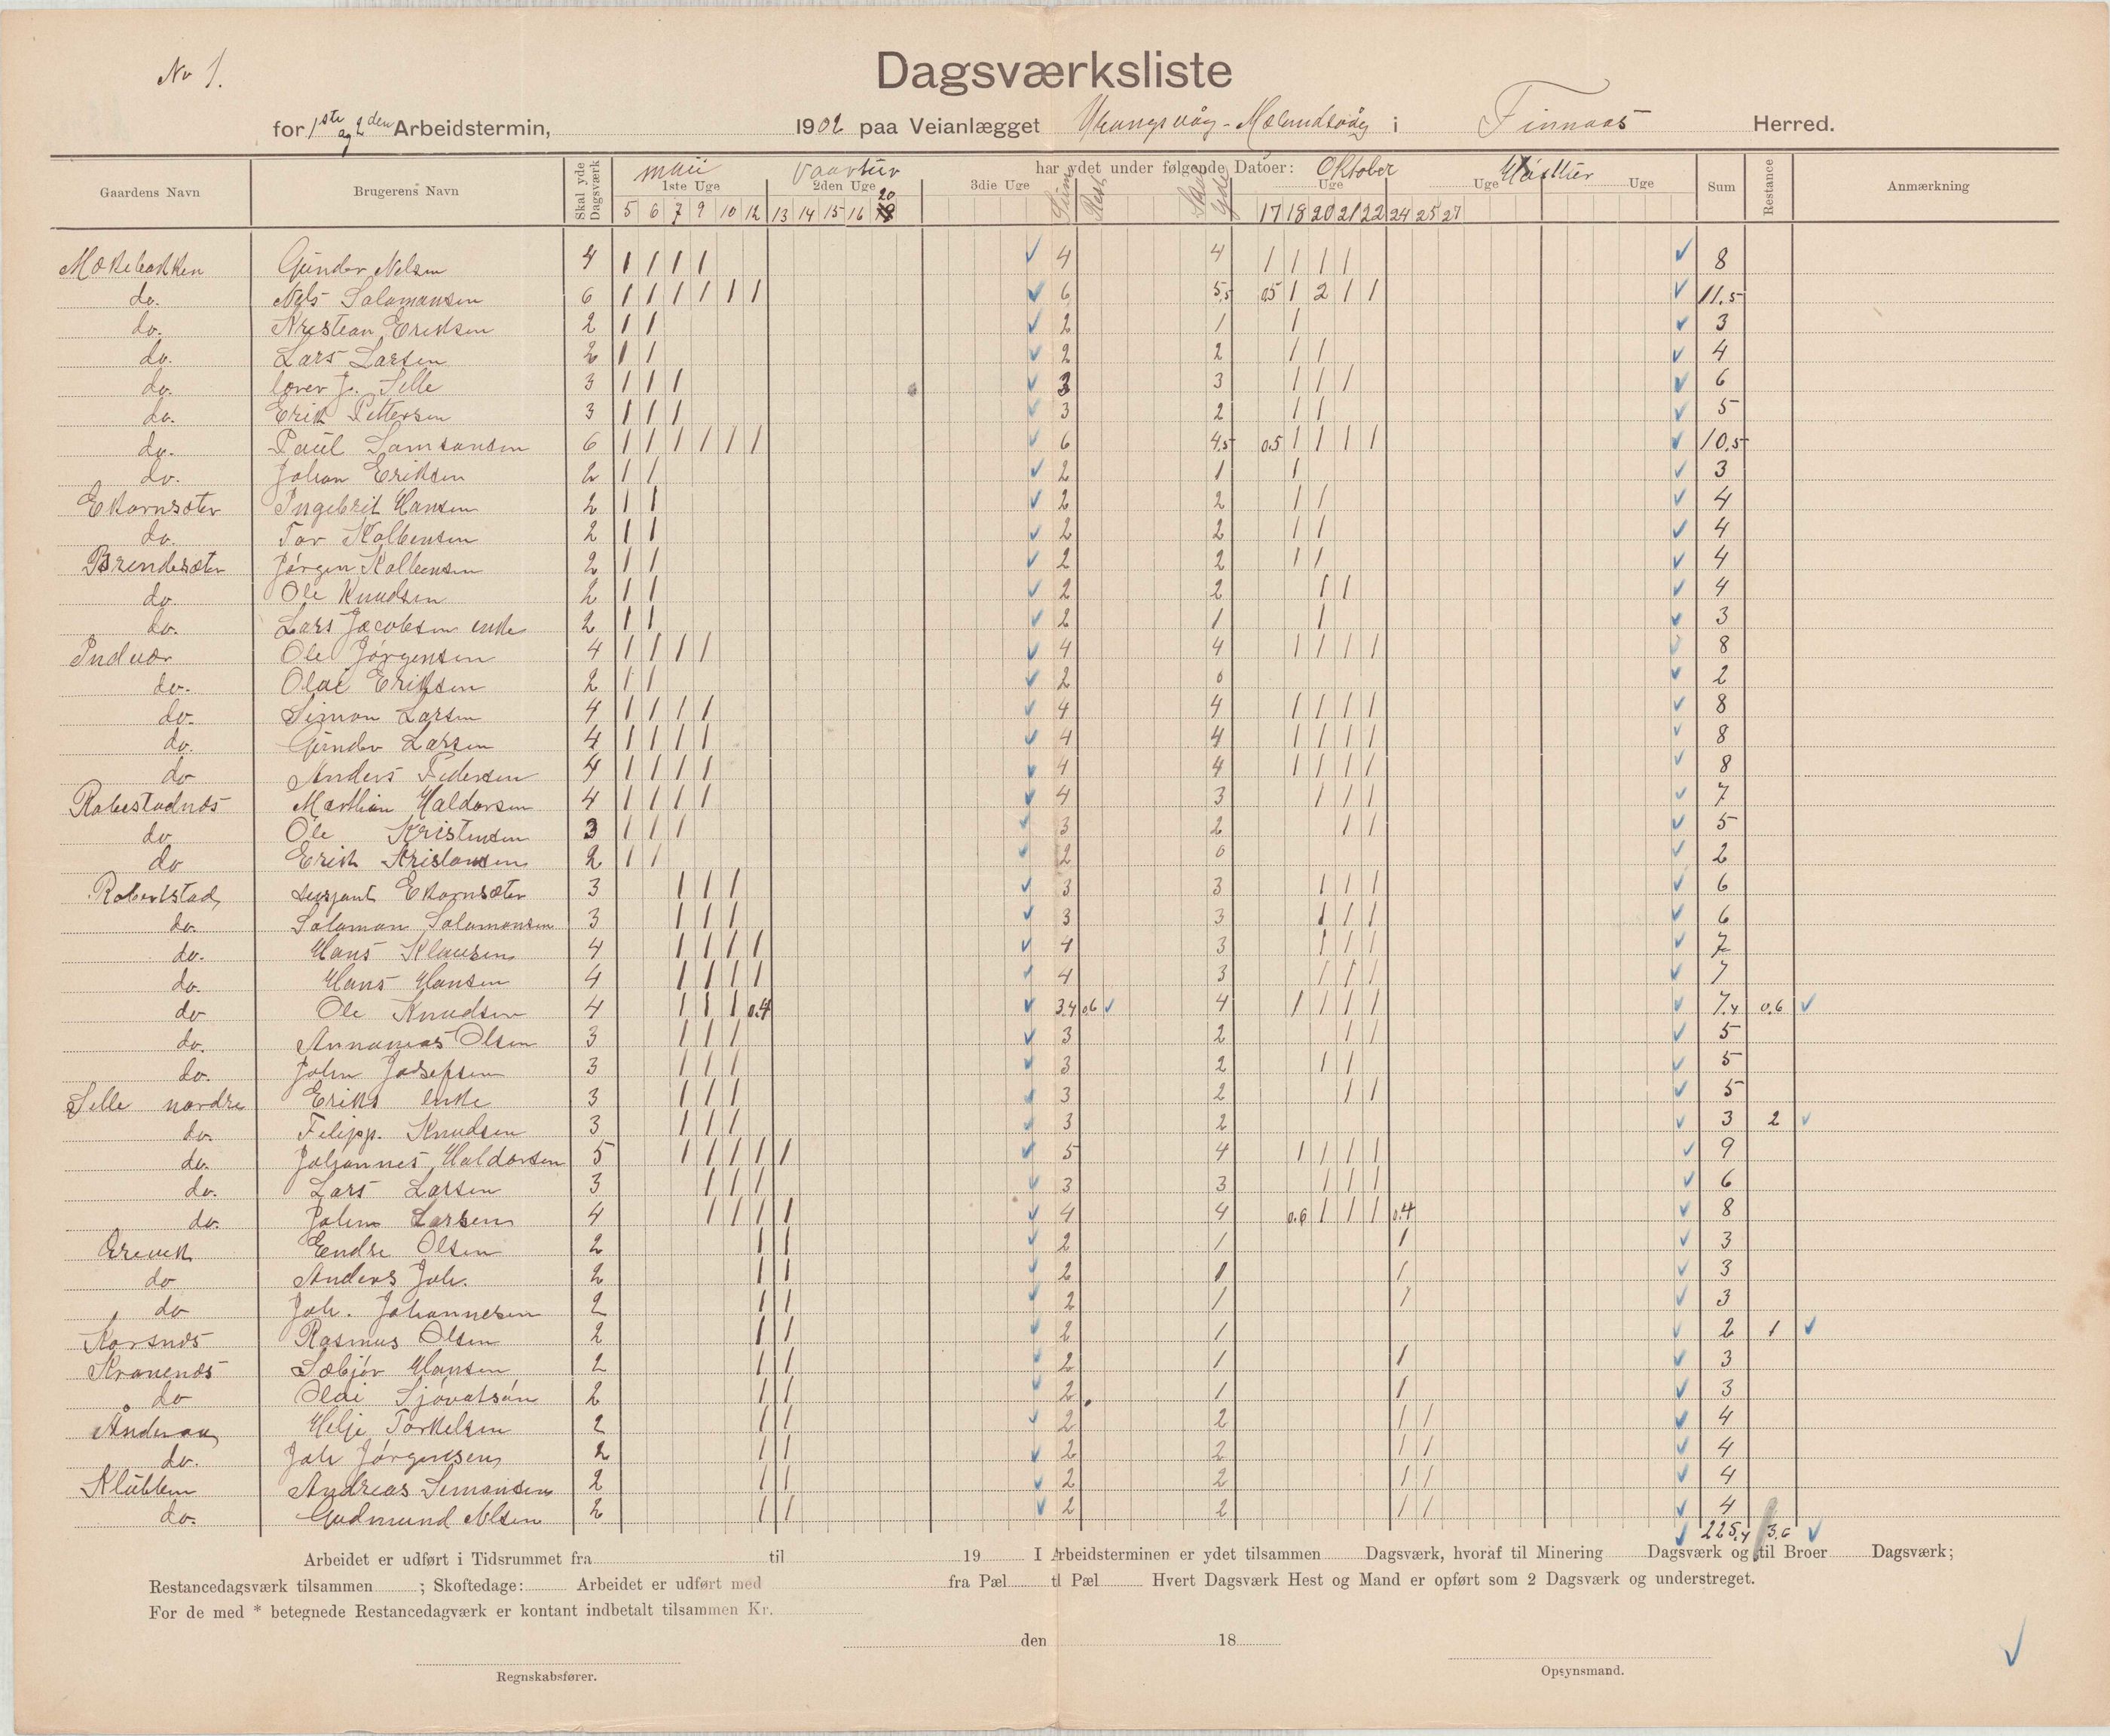 No 1.
Dagsværksliste
for 1ste og 2den Arbeidstermin, 1902 paa Veianlægget Urangsvåg - Mælandsvåg i Finnaas Herred.
Gaardens Navn Brugerens Navn Skal yde Dagsværk maii Vaartur har ydet under følgende Datoer: Oktober Høsttur Sum Restance Anmærkning
1ste Uge 2den Uge 3die Uge Sum Rest Skal yde Uge Uge Uge
5 6 7 9 10 12 13 14 15 16 20 17 18 20 21 22 24 25 27
Mækebakken Gunder Nelsen 4 1 1 1 1 ✓ 4 4 1 1 1 1 ✓ 8
do. Nels Salamansen 6 1 1 1 1 1 1 ✓ 6 5,5 0,5 1 2 1 1 ✓ 11.5
do. Kristian Eriksen 2 1 1 ✓ 2 1 1 ✓ 3
do. Lars Larsen 2 1 1 ✓ 2 2 1 1 ✓ 4
do. lærer J. Selle 3 1 1 1 ✓ 3 3 1 1 1 ✓ 6
do. Erik Pettersen 3 1 1 1 ✓ 3 2 1 1 ✓ 5
do. Paul Samsonsen 6 1 1 1 1 1 1 ✓ 6 4,5 0.5 1 1 1 1 ✓ 10,5
do. Johan Eriksen 2 1 1 ✓ 2 1 1 ✓ 3
Ekornsæter Ingebrit Hansen 2 1 1 ✓ 2 2 1 1 ✓ 4
do. Tor Kolbensen 2 1 1 ✓ 2 2 1 1 ✓ 4
Brendesæter Jørgen Kolbensen 2 1 1 ✓ 2 2 1 1 ✓ 4
do. Ole Knudsen 2 1 1 ✓ 2 2 1 1 ✓ 4
do. Lars Jacobsen enke 2 1 1 ✓ 2 1 1 ✓ 3
Indvær Ole Jørgensen 4 1 1 1 1 ✓ 4 4 1 1 1 1 ✓ 8
do. Olai Eriksen 2 1 1 ✓ 2 0 ✓ 2
do. Simon Larsen 4 1 1 1 1 ✓ 4 4 1 1 1 1 ✓ 8
do. Gunder Larsen 4 1 1 1 1 ✓ 4 4 1 1 1 1 ✓ 8
do Anders Pedersen 4 1 1 1 1 ✓ 4 4 1 1 1 1 ✓ 8
Robestadnæs Matthias Haldorsen 4 1 1 1 1 ✓ 4 3 1 1 1 ✓ 7
do Ole Kristensen 3 1 1 1 ✓ 3 2 1 1 ✓ 5
do Erik Kristansen 2 1 1 ✓ 2 0 ✓ 2
Robertstad sersjant Ekornsæter 3 1 1 1 ✓ 3 3 1 1 1 ✓ 6
do. Salaman Salamansen 3 1 1 1 ✓ 3 3 1 1 1 ✓ 6
do. Hans Klausen 4 1 1 1 1 ✓ 4 3 1 1 1 ✓ 7
do. Hans Hansen 4 1 1 1 1 ✓ 4 3 1 1 1 ✓ 7
do Ole Knudsen 4 1 1 1 0.4 ✓ 3.4 0.6 ✓ 4 1 1 1 1 ✓ 7.4 0.6 ✓
do. Annanias Olsen 3 1 1 1 ✓ 3 2 1 1 ✓ 5
do. John Josefsen 3 1 1 1 ✓ 3 2 1 1 ✓ 5
Selle nordre Eriks enke 3 1 1 1 ✓ 3 2 1 1 ✓ 5
do. Filipp. Knudsen 3 1 1 1 ✓ 3 2 ✓ 3 2 ✓
do. Johannes Haldorsen 5 1 1 1 1 1 ✓ 5 4 1 1 1 1 ✓ 9
do. Lars Larsen 3 1 1 1 ✓ 3 3 1 1 1 ✓ 6
do. Johns Larsen 4 1 1 1 1 ✓ 4 4 0.6 1 1 1 0.4 ✓ 8
Grevik Endre Olsen 2 1 1 ✓ 2 1 1 ✓ 3
do Anders Joh. 2 1 1 ✓ 2 1 1 ✓ 3
do Joh. Johannesen 2 1 1 ✓ 2 1 1 ✓ 3
Korsnæs Rasmus Olsen 2 1 1 ✓ 2 1 ✓ 2 1 ✓
Kranenæs Sæbjør Hansen 2 1 1 ✓ 2 1 1 ✓ 3
do Olai Sjovatsøn 2 1 1 ✓ 2 1 1 ✓ 3
Helje Torkelsen 2 1 1 ✓ 2 2 1 1 ✓ 4
do. Joh Jørgensen 2 1 1 ✓ 2 2 1 1 ✓ 4
Klubben Andreas Simonsen 2 1 1 ✓ 2 2 1 1 ✓ 4
do. Gudmund Nlsen 2 1 1 ✓ 2 2 1 1 ✓ 4
✓ 225,4 3,6 ✓
Arbeidet er udført i Tidsrummet fra til 19 I Arbeidsterminen er ydet tilsammen Dagsværk, hvoraf til Minering Dagsværk og til Broer Dagsværk;
Restancedagsværk tilsammen ; Skoftedage: Arbeidet er udført med fra Pæl tl Pæl Hvert Dagsværk Hest og Mand er opført som 2 Dagsværk og understreget.
For de med * betegnede Restancedagværk er kontant indbetalt tilsammen Kr.
den 18
Regnskabsfører. Opsynsmand. ✓